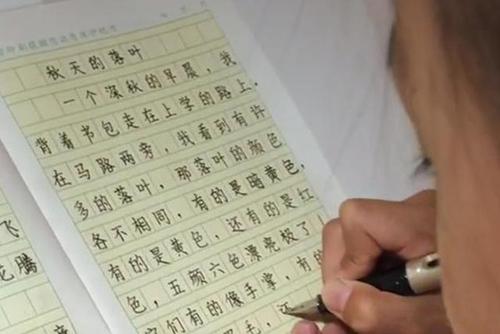 秋天的落叶
一个深秋的早晨，我
背着书包走在上学的路上，
在马路两旁，我看到有许
多的落叶，那落叶的颜色
各不相同，有的是暗黄色，
有的是黄色，还有的是红
色，五颜六色漂亮极了！
它们有的像手掌，有的
毛，还
飞
腾